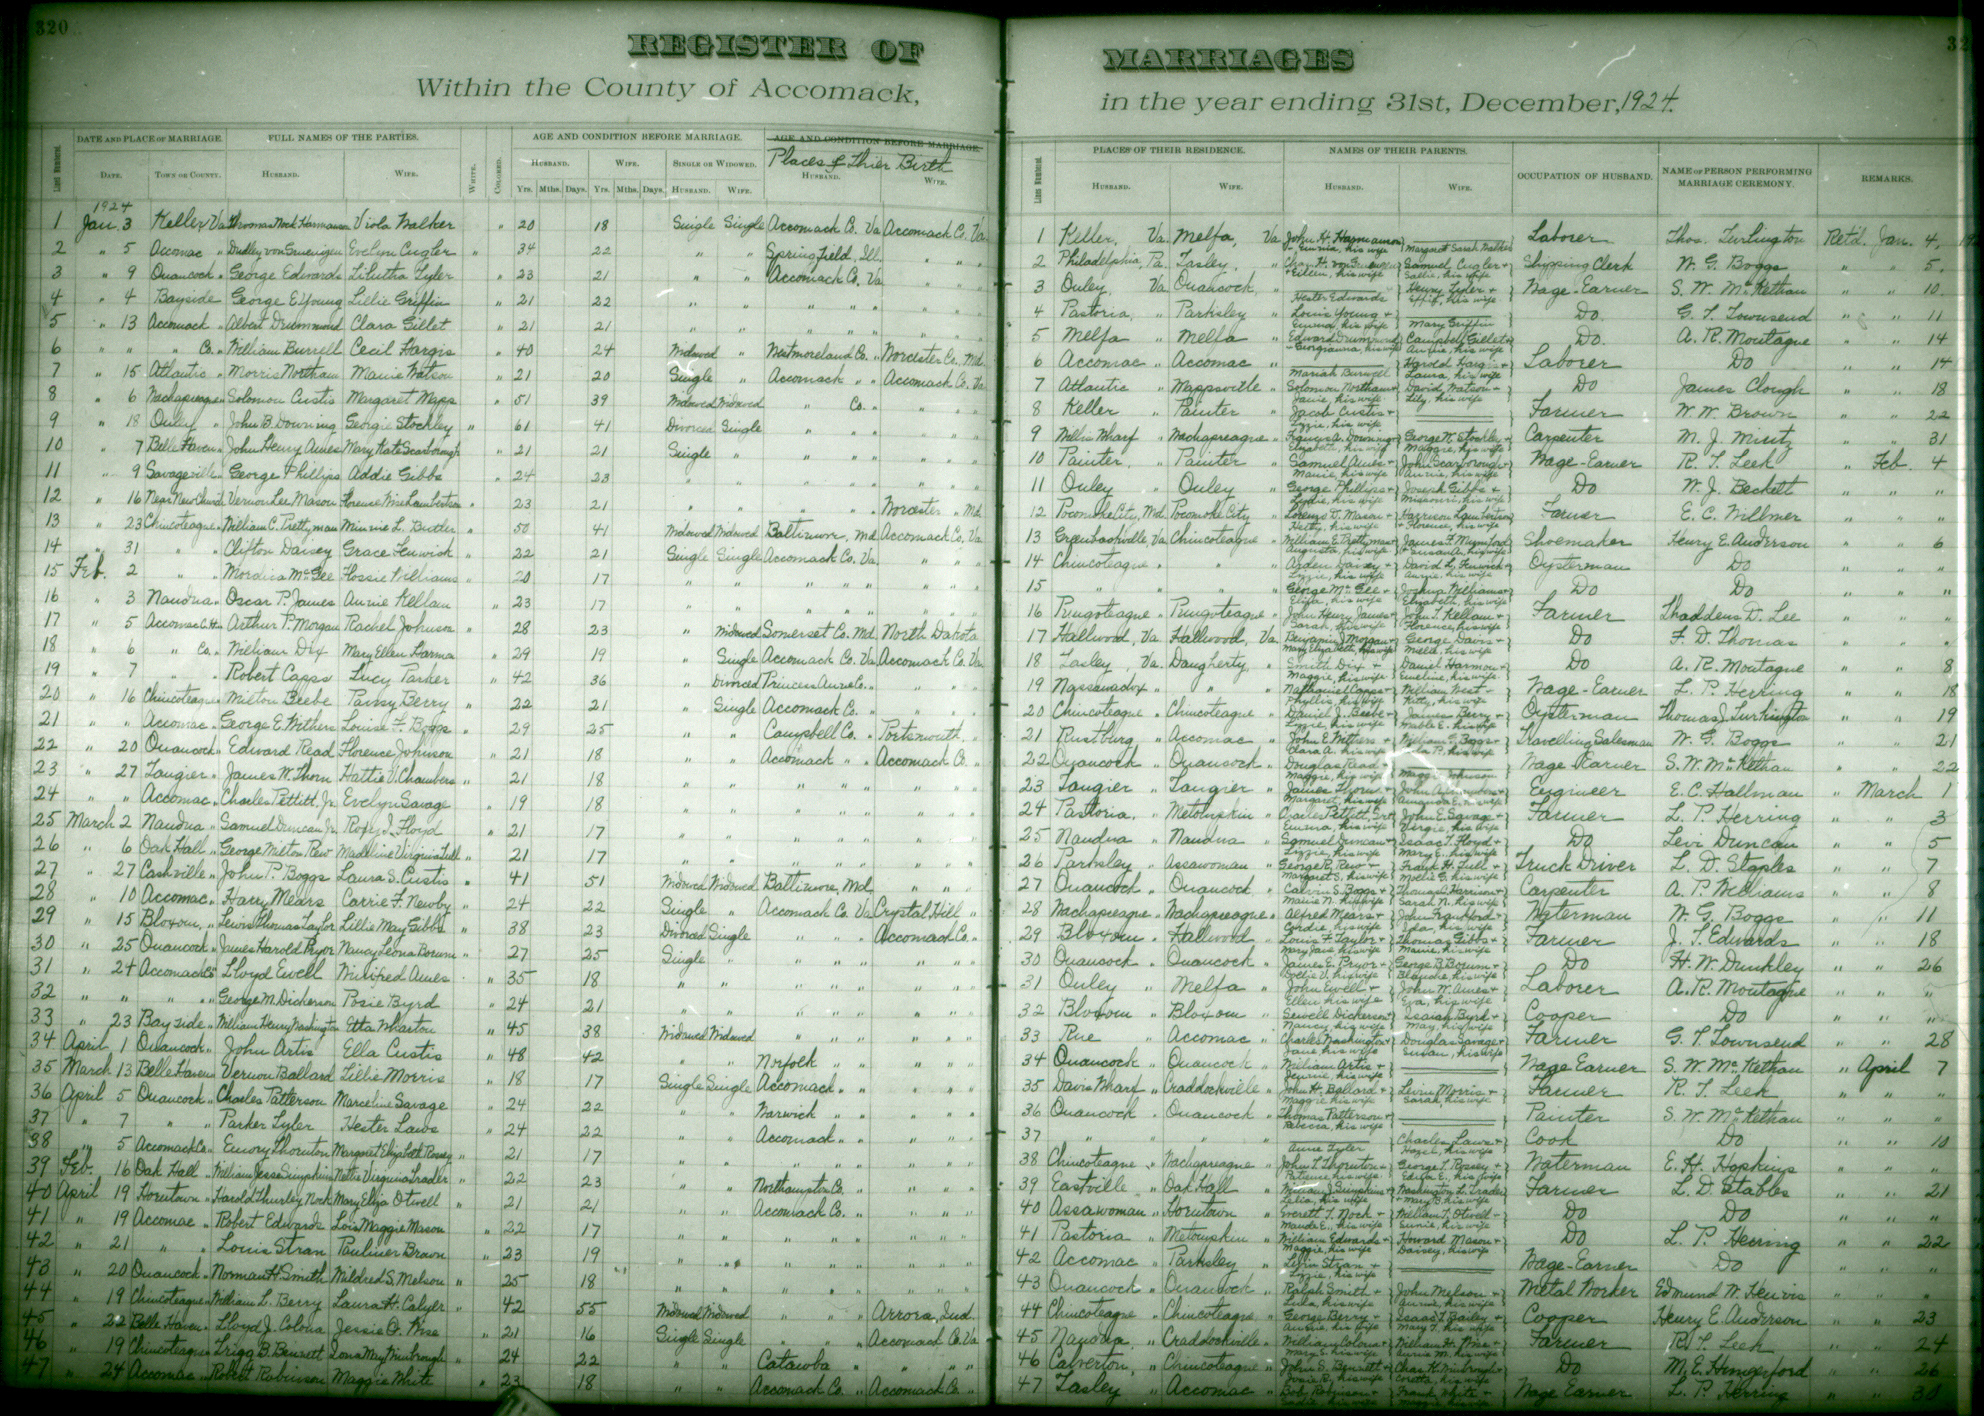 320
REGISTER OF MARRIAGES
Within the County of Accomack, in the year ending 31st, December, 1924.
DATE AND PLACE OF MARRIAGE. FULL NAMES OF THE PARTIES. AGE AND CONDITION BEFORE MARRIAGE. AGE AND CONDITION BEFORE MARRIAGE.
Places of Thier Birth
Lines Numbered. DATE. TOWN OR COUNTY. HUSBAND. WIFE. WHITE. COLORED. HUSBAND. WIFE. SINGLE OR WIDOWED. HUSBAND. WIFE.
Yrs. Mths. Days. Yrs. Mths. Days. HUSBAND. WIFE.
1924
1 Jan. 3 Keller, Va Viola Walker " 20 18 Single Single Accomack Co. Va Accomack Co. Va.
2 " 5 Accomac " Evelyn Cugler " 34 22 " " Springfield, Ill. " " "
3 " 9 Onancock " George Edwards Tyler " 23 21 " " Accomack Co. Va " " "
4 " 4 Bayside " George E Young Lillie Griffin " 21 22 " " " " " " " "
5 " 13 Accomack " Albert Drummond Clara Gillet " 21 21 " " " " " " " "
6 " " " Co. " William Burrell Cecil Hargis " 40 24 Widowed " Westmoreland Co. " Worcester Co. Md.
7 " 15 Atlantic " Morris Northam Mamie Watson " 21 20 Single " Accomack " " Accomack Co. Va
8 " 6 Wachapreague " Solomon Custis Margaret Mapp " 51 39 Widowed Widowed " Co. " " " "
9 " 18 Onley " John B. Downing Georgie Stockley " 61 41 Divorced Single " " " " " "
10 " 7 Belle Haven " John Henry Ames Mary Kate Scarborough " 21 21 Single " " " " " " "
11 " 9 Savageville " George Phillips Addie Gibbs " 24 23 " " " " " " " "
12 " 16 Near New Church Vernon Lee Mason " 23 21 " " " " " Worcester " Md.
13 " 23 Chincoteague " William C. Prettyman Minnie L. Butler " 50 41 Widowed Widowed Baltimore, Md Accomack Co. Va
14 " 31 " " Clifton Daisey Grace Fenwick " 22 21 Single Single Accomack Co. Va. " " "
15 Feb. 2 " " McGee Flossie Williams " 20 17 " " " " " " " "
16 " 3 Nandua " Oscar P. James Annie Kellam " 23 17 " " " " " " " "
17 " 5 Accomac C.H. " Arthur P. Morgan Rachel Johnson " 28 23 " Widowed Somerset Co. Md. North Dakota
18 " 6 " Co. " William Dix Mary Ellen Harmon " 29 19 " Single Accomack Co. Va Accomack Co. Va
19 " 7 " " Robert Capps Lucy Parker " 42 36 " Divorced Princess Anne Co. " " " "
20 " 16 Chincoteague " Milton Beebe Pansy Berry " 22 21 " Single Accomack Co. " " " "
21 " " Accomac " George E. Withers Louise F. Boggs " 29 25 " " Campbell Co. " Portsmouth, "
22 " 20 Onancock " Edward Read Florence Johnson " 21 18 " " Accomack " " Accomack Co. "
23 " 27 Tangier " James W. Thorn Hattie V. Chambers " 21 18 " " " " " " " "
24 " " Accomac " Charles Pettitt, Jr. Evelyn Savage " 19 18 " " " " " " " "
25 March 2 Nandua " Samuel Duncan Jr. Floyd " 21 17 " " " " " " " "
26 " 6 Oak Hall " George Milton Rew Madeline Virginia Tull " 21 17 " " " " " " " "
27 " 27 Cashville " John P. Boggs Laura S. Custis " 41 51 Widowed Widowed Baltimore, Md " " "
28 " 10 Accomac " Harry Mears Carrie F. Newby " 24 22 Single " Accomack Co. Va Crystal Hill "
29 " 15 Bloxom, " Lewis Thomas Taylor Lillie May Gibbs " 38 23 Divorced Single " " " Accomack Co. "
30 " 25 Onancock " James Harold Pryor Nancy Leona Borum " 27 25 Single " " " " " " "
31 " 24 Accomack Co " Lloyd Ewell Winifred Ames " 35 18 " " " " " " " "
32 " " " " " George M. Dickerson Posie Byrd " 24 21 " " " " " " " "
33 " 23 Bayside " William Henry Washington Etta Wharton " 45 38 Widowed Widowed " " " " " "
34 April 1 Onancock " John Artis Ella Custis " 48 42 " " Norfolk " " " " "
35 March 13 Belle Haven " Vernon Ballard Lillie Morris " 18 17 Single Single Accomack " " " " "
36 April 5 Onancock " Charles Patterson Marceline Savage " 24 22 " " Warwick " " " " "
37 " 7 " " Parker Tyler Hester Laws " 24 22 " " Accomack " " " " "
38 " 5 Accomack Co " Emory Thornton Margaret Elizabeth " 21 17 " " " " " " " "
39 Feb. 16 Oak Hall " William Jesse Simpkins Nettie Virginia Trader " 22 23 " " Northampton Co. " " " "
40 April 19 Horntown " Harold Thurley Nock Mary Eliza Otwell " 21 21 " " Accomack Co. " " " "
41 " 19 Accomac " Robert Edwards Lois Maggie Mason " 22 17 " " " " " " " "
42 " 21 " " Louis Stran Pauliner Brown " 23 19 " " " " " " " "
43 " 20 Onancock " Norman H. Smith Mildred S. Melson " 25 18 " " " " " " " "
44 " 19 Chincoteague " William L. Berry Laura H. Calyer " 42 55 Widowed Widowed " " Arrora, Ind.
45 " 22 Belle Haven " Lloyd J. Colona Jessie O. Wise " 21 16 Single Single " " Accomack Co. Va
46 " 19 Chincoteague " Trigg B. Bennett " 24 22 " " Catawba " " " "
47 " 24 Accomac " Robert Robinson Maggie White " 23 18 " " Accomack Co. " Accomack Co. "
Lines Numbered. PLACES OF THEIR RESIDENCE. NAMES OF THEIR PARENTS. OCCUPATION OF HUSBAND. NAME OF PERSON PERFORMING MARRIAGE CEREMONY. REMARKS.
HUSBAND. WIFE. HUSBAND. WIFE.
1 Keller, Va Melfa, Va John H. Harmanson + his wife Margaret Sarah Walker Laborer Thos. Turlington Ret'd. Jan. 4,
2 Philadelphia, Pa. Tasley, " + Eileen, his wife Samuel Cugler + Sallie, his wife Shipping Clerk W. G. Boggs " " 5.
3 Onley, Va Onancock, " Hester Edwards Henry Tyler + Effie, his wife Wage-Earner S. W. McKethan " " 10.
4 Pastoria, " Parksley " Louis Young + Emma, his wife Mary Griffin Do G. T. Townsend " " 11
5 Melfa " Melfa " Edward Drummond + Georgianna, his wife Campbell Gillet + Annie, his wife Do. A. R. Montague " " 14
6 Accomac " Accomac " Mariah Burwell Harold Hargis + Laura, his wife Laborer Do " " 14
7 Atlantic " Mappsville " Solomon Northam + Janie, his wife David Watson + Lily, his wife Do James Clough " " 18
8 Keller " Painter " Jacob Custis + Lizzie, his wife Farmer W. W. Brown " " 22
9 Willis Wharf " Wachapreague " Downing + Elizabeth, his wife George W. Stockley + Maggie, his wife Carpenter M. J. Mintz " " 31
10 Painter, " Painter " Samuel Ames + Mamie, his wife John Scarborough + Annie, his wife Wage-Earner R. T. Leek " Feb. 4
11 Onley " Onley " George Phillips + Lydia, his wife Joseph Gibbs + Missouri, his wife Do W. J. Beckett " " "
12 Pocomoke City, Md. Pocomoke City, " Lorenzo D. Mason + Hetty, his wife Harrison Lambertson + Florence, his wife Farmer E. C. Willmer " " "
13 Greenbackville Va Chincoteague " William E. Prettyman + Augusta, his wife James F. Mumford + Susan A., his wife Shoemaker Henry E. Anderson " " 6
14 Chincoteague " " " Daisey + Lizzie, his wife David L. Fenwick + Annie, his wife Oysterman Do " " "
15 " " " " George McGee + Eliza, his wife Joshua Williams + Elizabeth, his wife Do Do " " "
16 Pungoteague " Pungoteague " John Henry James + Sarah, his wife John T. Kellam + Florence, his wife Farmer Thaddeus D. Lee " " "
17 Hallwood, Va Hallwood, Va Benjamin J. Morgan + Mary Elizabeth, his wife George Davis + Millie, his wife Do F. D. Thomas " " "
18 Tasley, Va. Daugherty, " Smith Dix + Maggie, his wife Daniel Harmon + Emeline, his wife Do A. R. Montague " " 8
19 Nassawadox " " " Nathaniel Capps + Phyllis, his wife William West + Kitty, his wife Wage-Earner L. P. Herring " " 18
20 Chincoteague " Chincoteague " Daniel J. Beebe + Lizzie, his wife James Berry + his wife Oysterman Thomas J. Turkington " " 19
21 Rustburg " Accomac " John E. Withers + Clara A., his wife William G. Boggs + his wife Travelling Salesman W. G. Boggs " " 21
22 Onancock " Onancock " Douglas Read + Maggie, his wife Johnson Wage-Earner S. W. McKethan " " 22
23 Tangier " Tangier " James Thorn + Margaret, his wife John A. Chambers + Amanda E., his wife Engineer E. C. Hallman " March 1
24 Pastoria, " Metompkin " Charles Pettitt, Sr. + Emma, his wife John E. Savage + Vergie, his wife Farmer L. P. Herring " " 3
25 Nandua " Nandua " Samuel Duncan + Lizzie, his wife Isaac T. Floyd + Mary E., his wife Do Levi Duncan " " 5
26 Parksley " Assawoman " George R. Rew + Margaret S., his wife Frank H. Tull + Mollie G., his wife Truck Driver L. D. Staples " " 7
27 Onancock " Onancock " Calvin S. Boggs + Mamie N., his wife Thomas Harrison + Sarah N., his wife Carpenter A. P. Williams " " 8
28 Wachapreague " Wachapreague " Alfred Mears + Cordie, his wife John + Ida, his wife Waterman W. G. Boggs " " 11
29 Bloxom " Hallwood " Louis F. Taylor + Mary Jane, his wife Thomas Gibbs + Mamie, his wife Farmer J. T. Edwards " " 18
30 Onancock " Onancock " James E. Pryor + Dollie V., his wife George B. Borum + Blanche, his wife Do H. W. Dunkley " " 26
31 Onley " Melfa " John Ewell + Ellen, his wife John W. Ames + Eva, his wife Laborer A. R. Montague " " "
32 Bloxom " Bloxom " Sewell Dickerson + Nancy, his wife Isaiah Byrd + May, his wife Cooper Do " " "
33 Rue " Accomac " Charles Washington + Jane, his wife Douglas Savage + Susan, his wife Farmer G. T. Townsend " " 28
34 Onancock " Onancock " William Artis + his wife Wage Earner S. W. McKethan " April 7
35 Davis Wharf " Craddockville " John H. Ballard + Maggie, his wife Levin Morris + Sarah, his wife Farmer R. T. Leek " " "
36 Onancock " Onancock " Thomas Patterson + Rebecca, his wife Painter S. W. McKethan " " "
37 " " " " Anne Tyler Charles Laws + Hazel, his wife Cook Do " " 10
38 Chincoteague " Wachapreague " John T. Thornton + his wife George T. + Edith E., his wife Waterman E. H. Hopkins " " "
39 Eastville " Oak Hall " William J. Simpkins + Lelia, his wife Washington L. Trader + Mary B. his wife Farmer L. D. Stables " " 21
40 Assawoman " Horntown " Everett T. Nock + Maude E., his wife William T. Otwell + Eunie, his wife Do Do " " "
41 Pastoria " Metompkin " William Edwards + Maggie, his wife Howard Mason + Daisey, his wife Do L. P. Herring " " 22
42 Accomac " Parksley " Levin Stran + Lizzie, his wife Wage-Earner Do " " "
43 Onancock " Onancock " Ralph Smith + Lula, his wife John Melson + Annie, his wife Metal Worker Edmund W. Henvis " " "
44 Chincoteague " Chincoteague " George Berry + his wife Isaac T. Bailey + Mary T., his wife Cooper Henry E. Anderson " " 23
45 Nandua " Craddockville " William Colona + Mary S., his wife William H. Wise + his wife Farmer R. T. Leek " " 24
46 Calverton, " Chincoteague " John S. Bennett + Josie B., his wife Chas. H. + Coretta, his wife Do M. E. Hungerford " " 26
47 Tasley " Accomac " Bob Robinson + Sadie, his wife Frank White + Maggie, his wife Wage Earner L. P. Herring " " 30